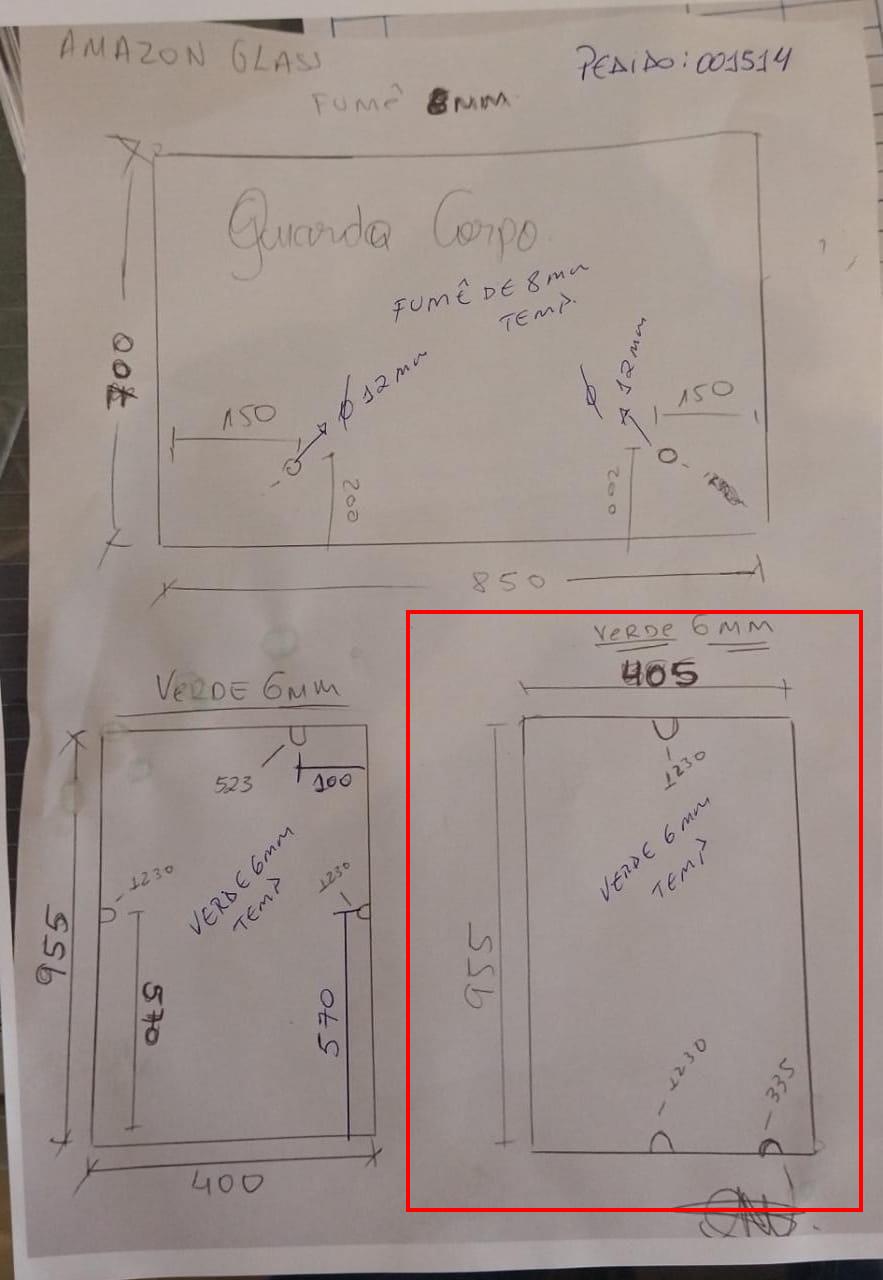 AMAZON GLASS
PEDIDO: 001514
FUMÊ 8MM
Guarda Corpo
FUMÊ DE 8mm
TEMP.
700
150
Ø 12mm
200
Ø 12mm
150
200
850
VERDE 6MM
523
100
1230
1230
VERDE 6mm
TEMP
955
570
570
400
VERDE 6MM
405
1230
VERDE 6mm
TEMP
955
1230
335